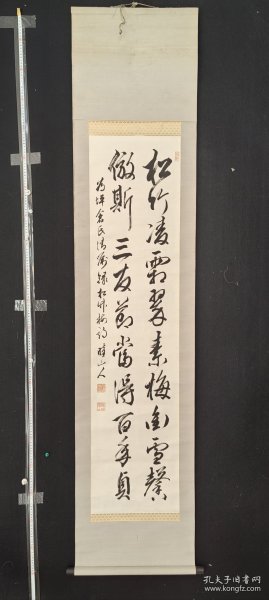 松竹凌霜翠素梅向雪馨
倣斯三友節當得百年貞
為坪倉氏清属録松竹梅詩 山人
孔夫子旧书网
www.kongfz.com